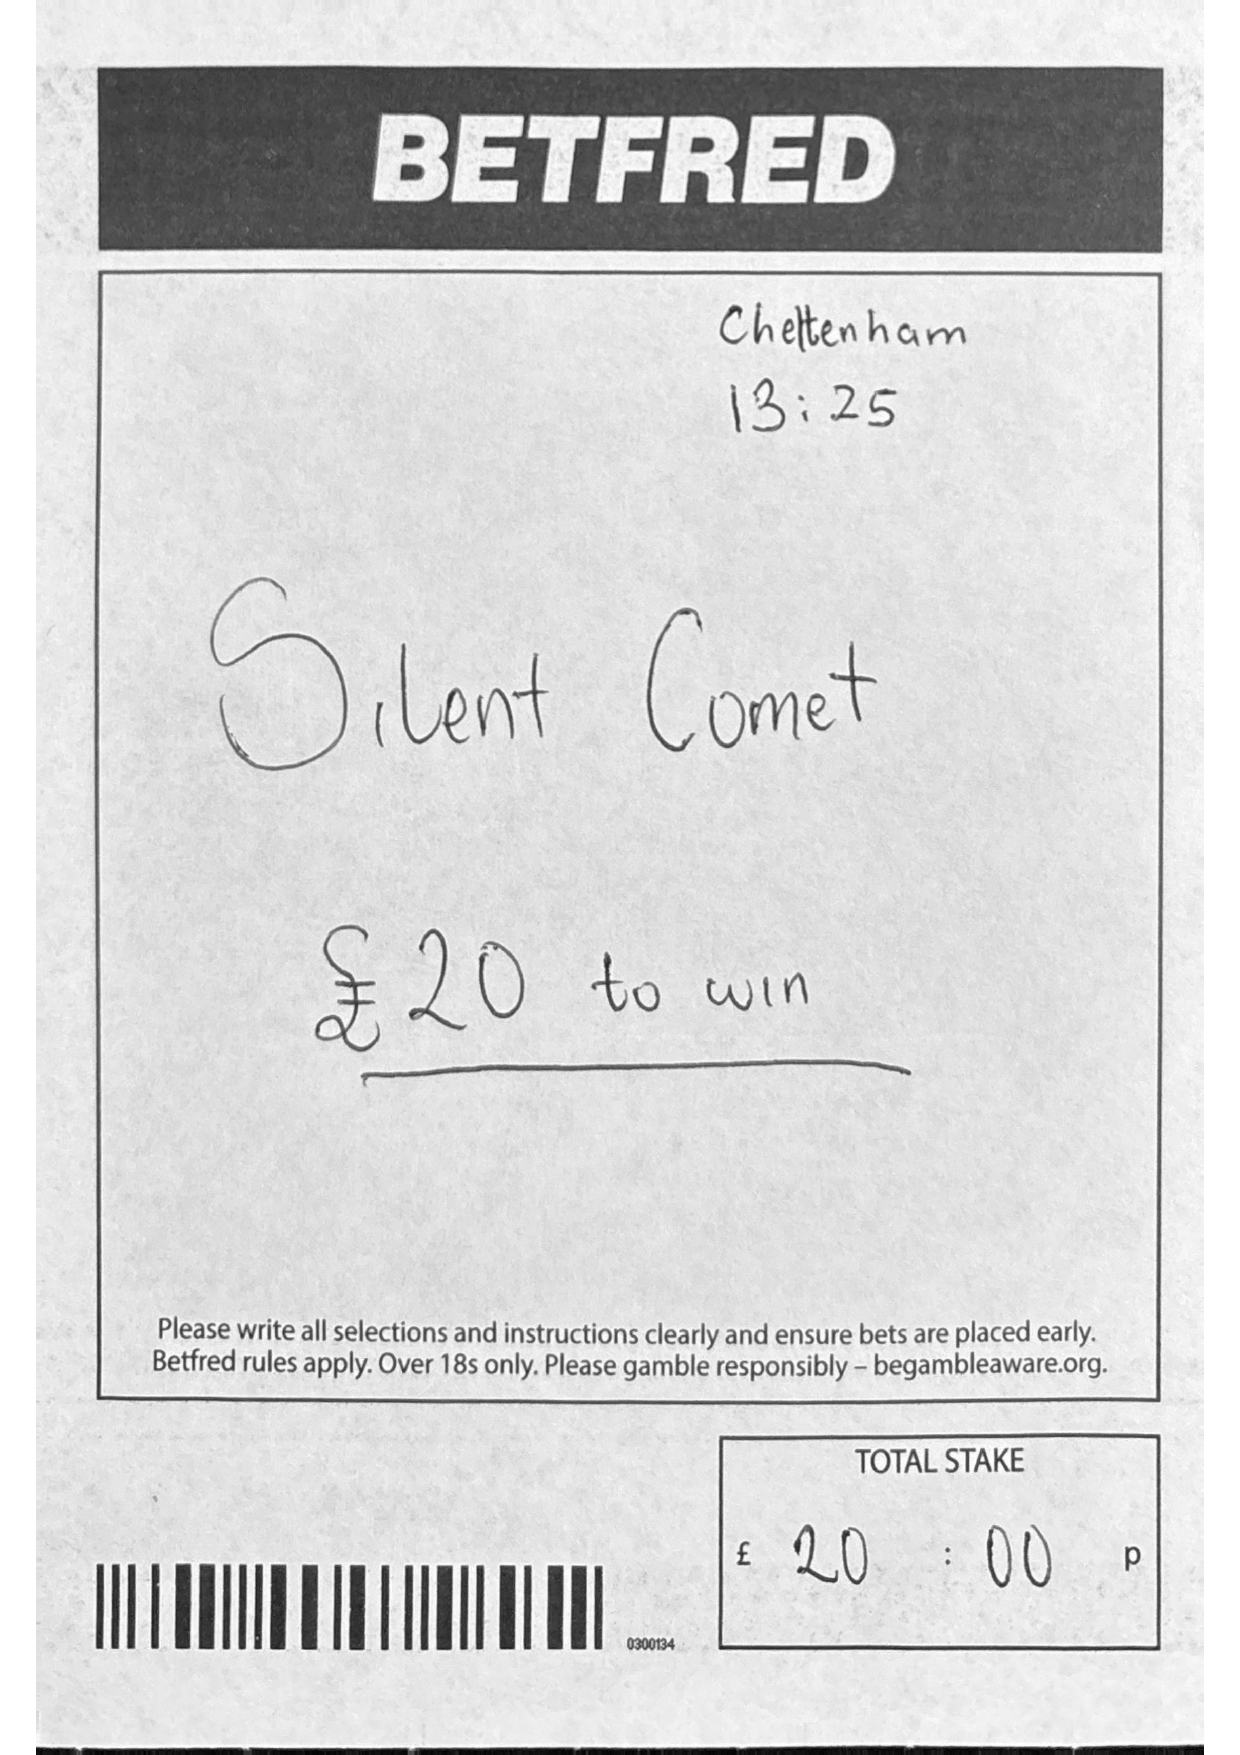 BETFRED
Cheltenham
13:25
Silent Comet
£20 to win
Please write all selections and instructions clearly and ensure bets are placed early.
Betfred rules apply. Over 18s only. Please gamble responsibly – begambleaware.org.
TOTAL STAKE
£ 20 : 00 p
0300134